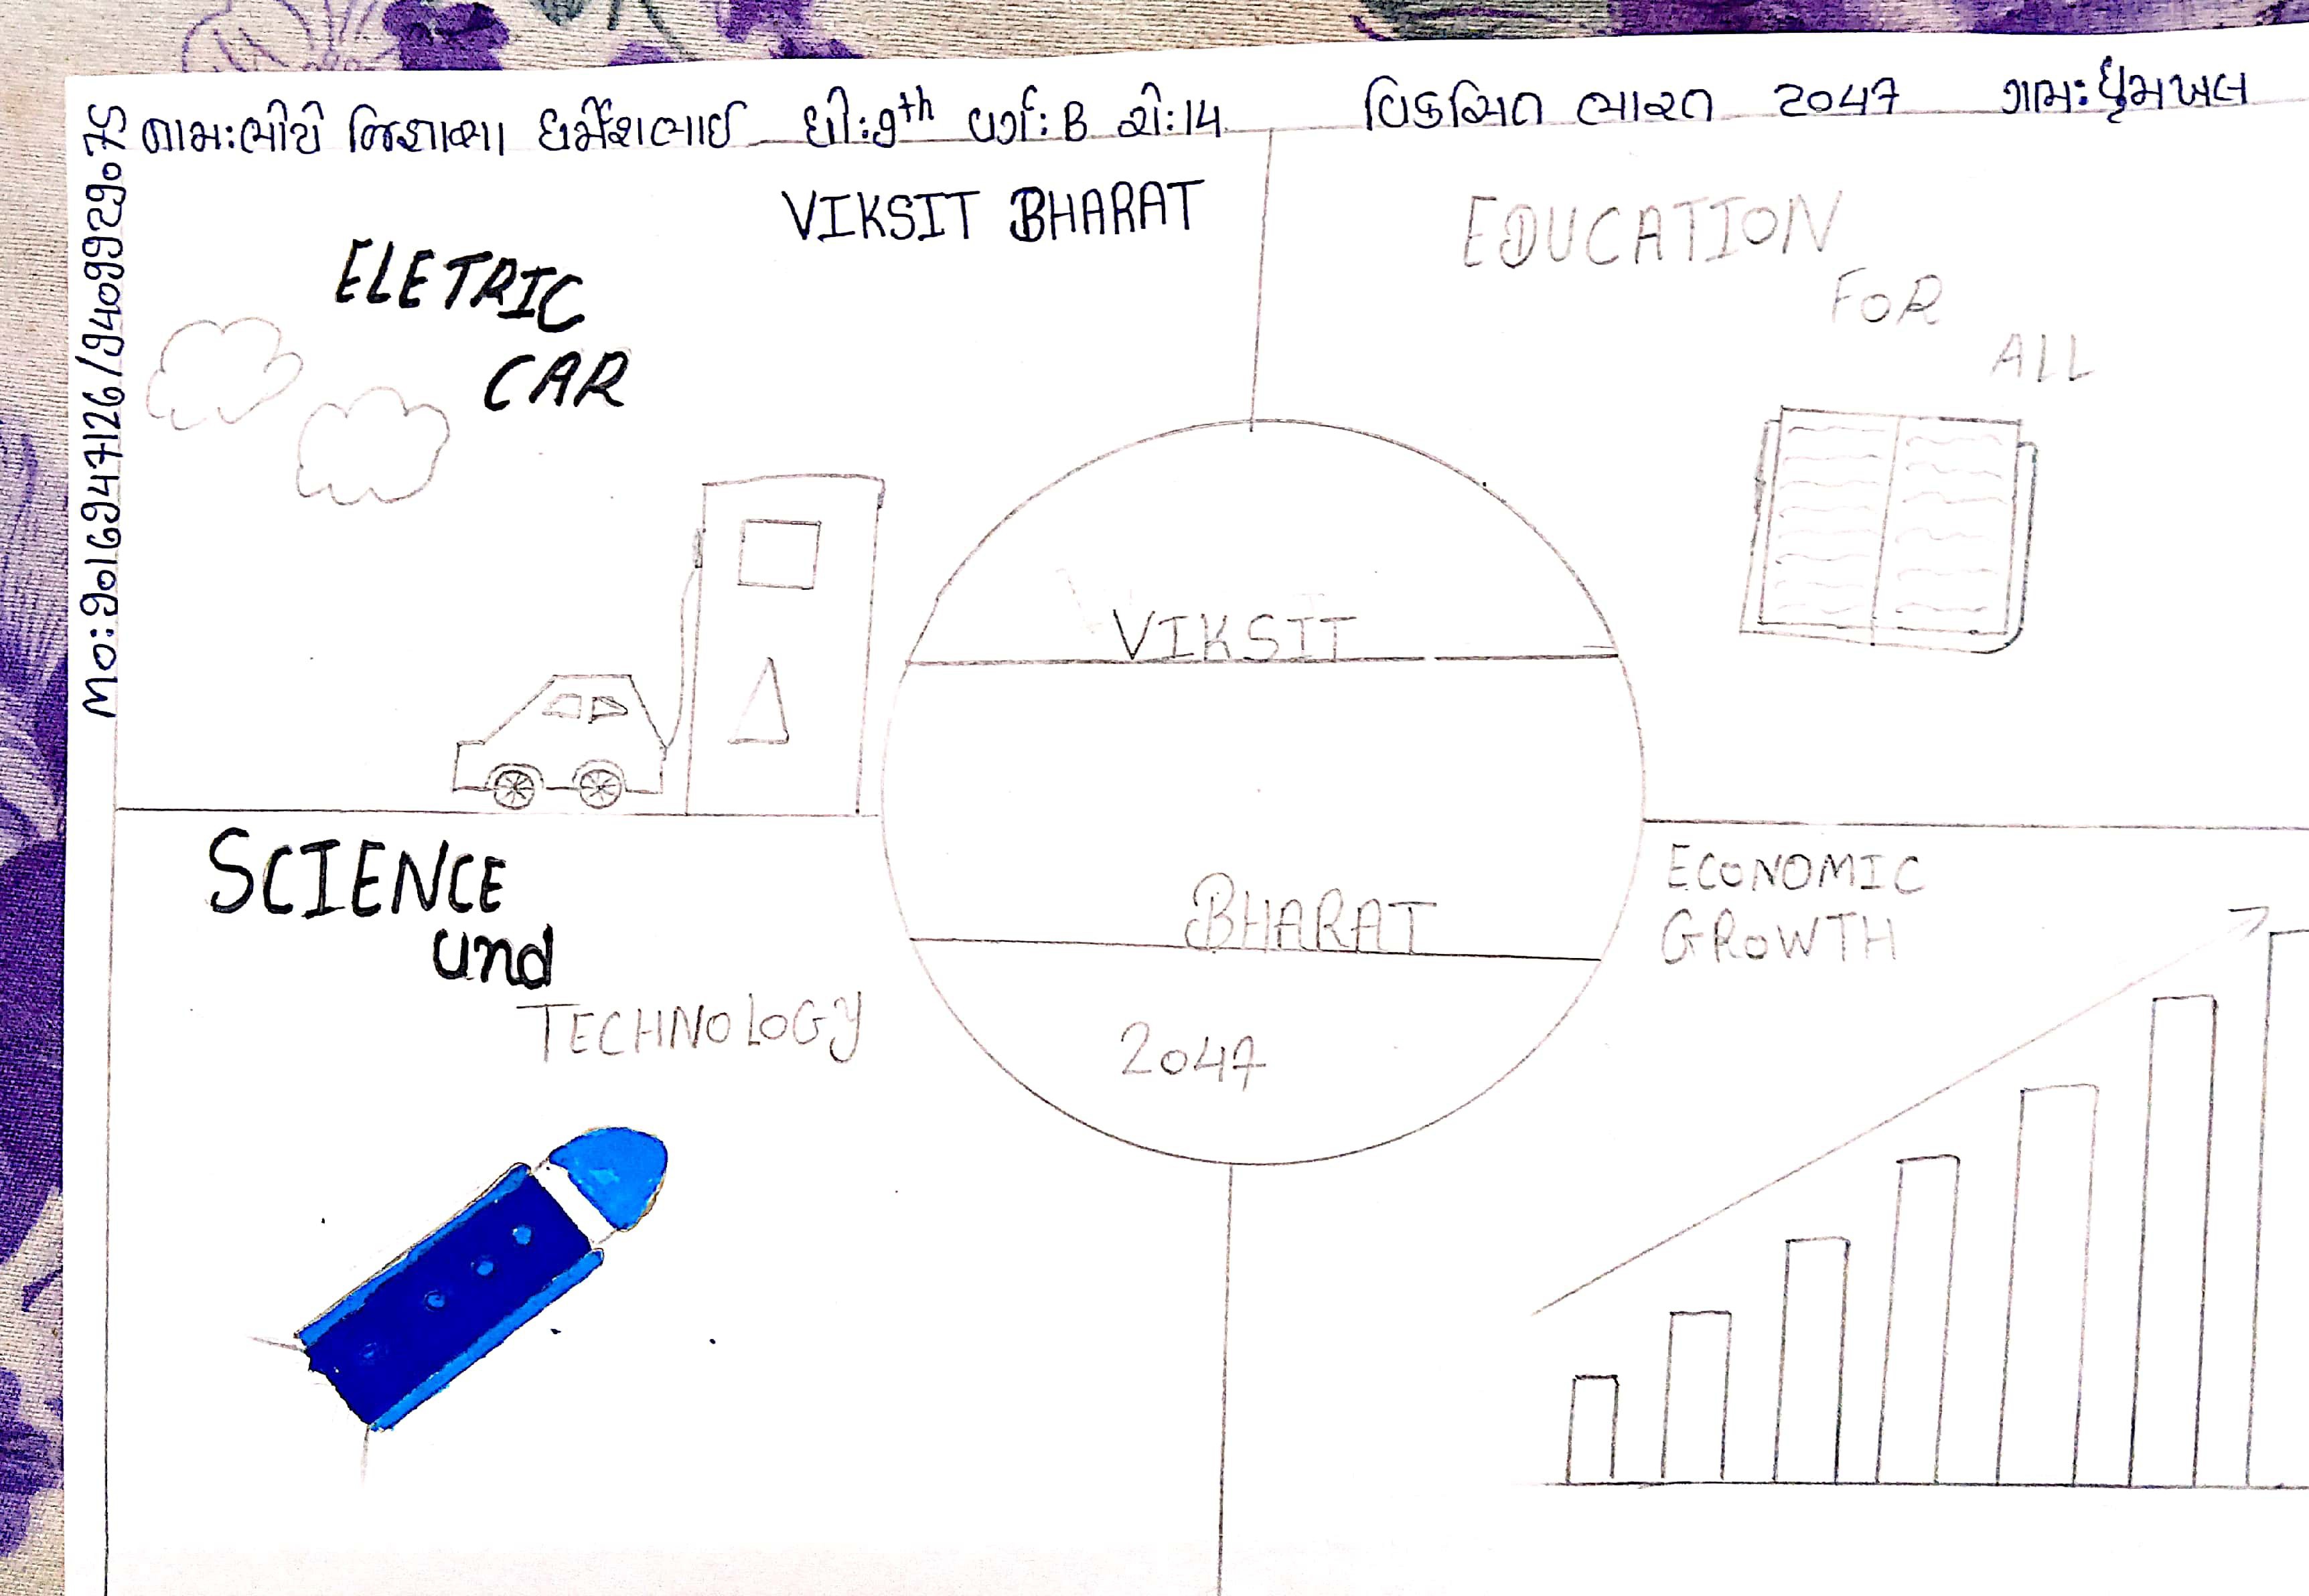 નામ:ભોયે જિજ્ઞાસા ધર્મેશભાઈ ધો:9th વર્ગ: B રો:14 વિકસિત ભારત 2047 ગામ: ધુમખલ
Mo:9016947126/9409929075
VIKSIT BHARAT
ELETRIC
CAR
EDUCATION
FOR
ALL
VIKSIT
BHARAT
2047
SCIENCE
und
TECHNOLOGY
ECONOMIC
GROWTH